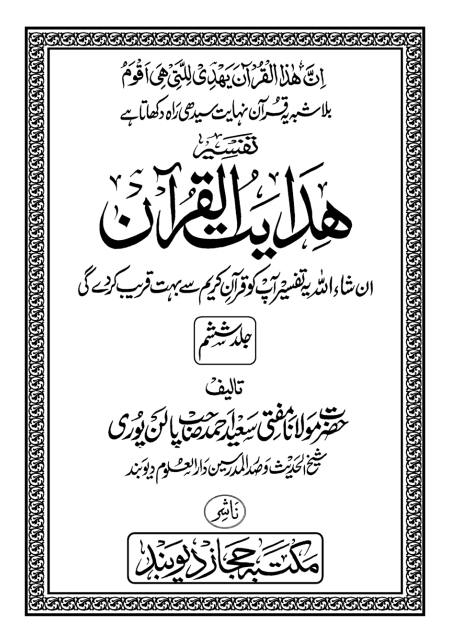 اِنَّ هٰذَا الْقُرْآنَ يَهْدِىْ لِلَّتِىْ هِىَ اَقْوَمُ
بلاشبہ یہ قرآن نہایت سیدھی راہ دکھاتا ہے
تفسیر
ہدایت القرآن
ان شاء اللہ یہ تفسیر آپ کو قرآنِ کریم سے بہت قریب کردے گی
جلد ششم
تالیف
حضرت مولانا مفتی سعید احمد صاحب پالن پوری
شیخ الحدیث وصدر المدرسین دارالعلوم دیوبند
ناشر
مکتبہ حجاز دیوبند